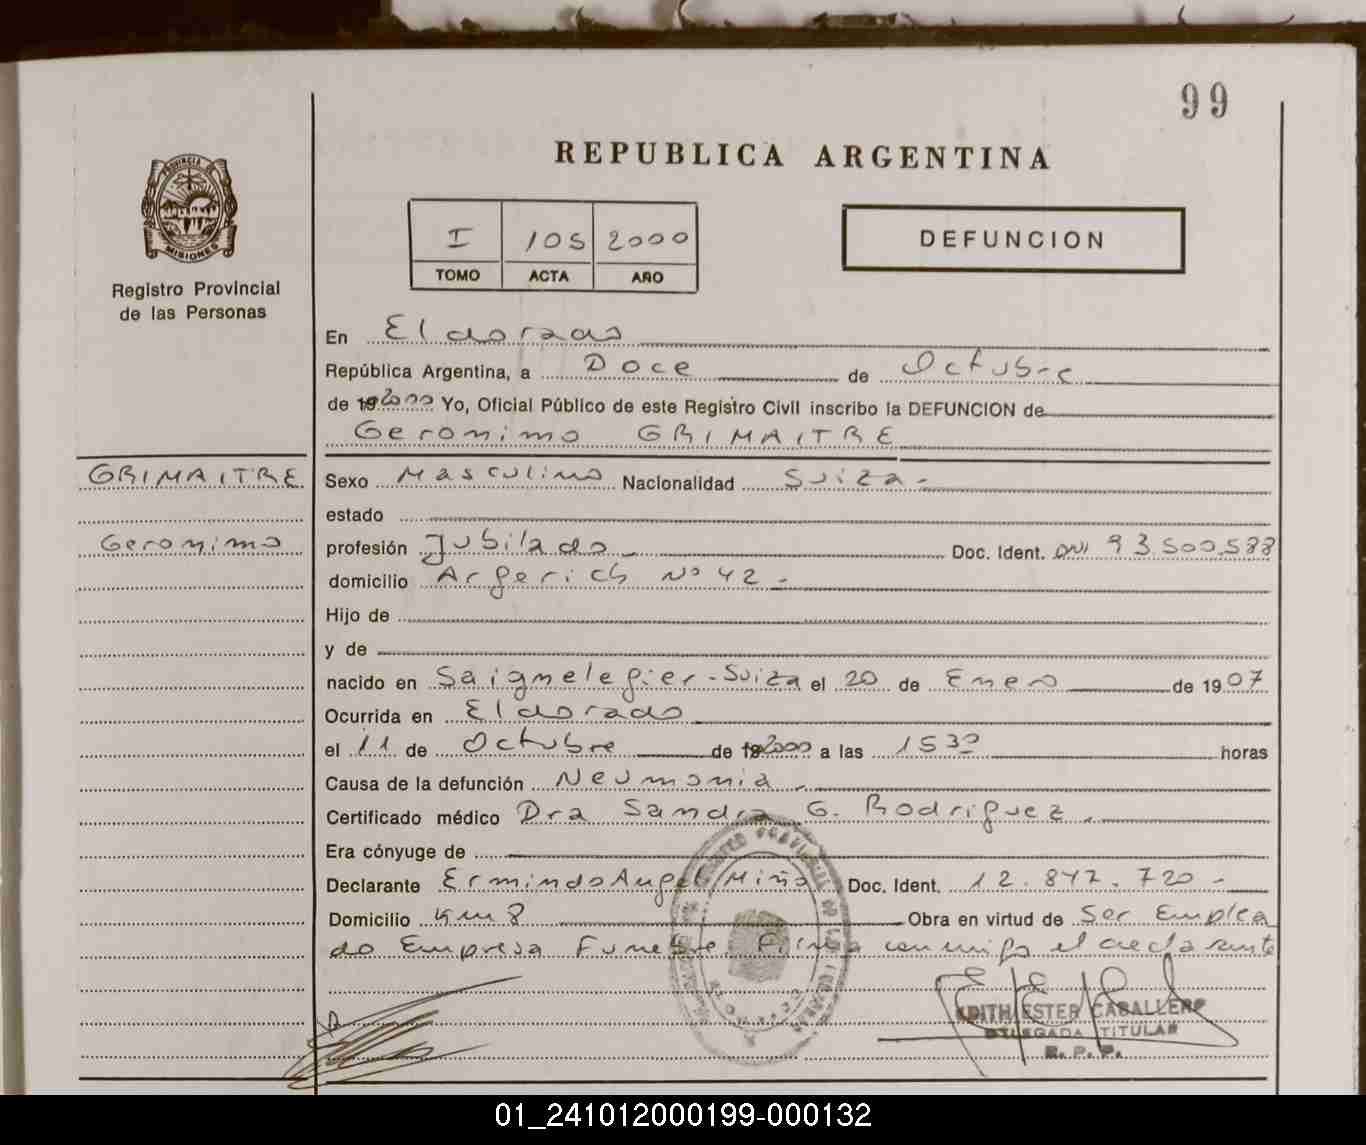 99
REPUBLICA ARGENTINA
PROVINCIA DE
MISIONES
Registro Provincial
de las Personas
I 105 2000
TOMO ACTA AÑO
DEFUNCION
En Eldorado
República Argentina, a Doce de Octubre
de 192000 Yo, Oficial Público de este Registro Civil inscribo la DEFUNCION de
Geronimo GRIMAITRE
GRIMAITRE
Geronimo
Sexo Masculino Nacionalidad Suiza.-
estado
profesión Jubilado Doc. Ident. DNI 93.500.588
domicilio Argerich Nº 42.-
Hijo de
y de
nacido en Saignelegier-Suiza el 20 de Enero de 1907
Ocurrida en Eldorado
el 11 de Octubre de 192000 a las 1530 horas
Causa de la defunción Neumonia.
Certificado médico Dra Sandra G. Rodriguez.
Era cónyuge de
Declarante Ermindo Angel Miño Doc. Ident. 12.847.720-
Domicilio Km 8 Obra en virtud de Ser Emplea
do Empresa Funebre. Firma conmigo el declarante
EDITH ESTER CABALLERO
DELEGADA TITULAR
R. P. P.
01_241012000199-000132